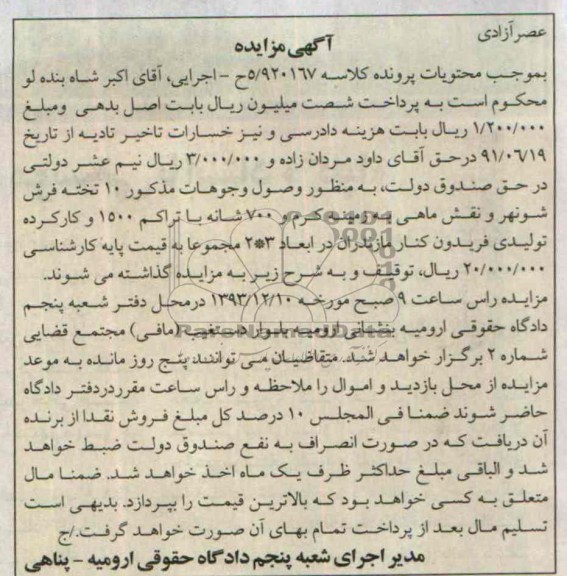 عصرآزادی
آگهی مزایده
بموجب محتویات پرونده کلاسه ۵/۹۲۰۱۶۷ح - اجرایی، آقای اکبر شاه بنده لو
محکوم است به پرداخت شصت میلیون ریال بابت اصل بدهی ومبلغ
۱/۲۰۰/۰۰۰ ریال بابت هزینه دادرسی و نیز خسارات تاخیر تادیه از تاریخ
۹۱/۰۶/۱۹ درحق آقای داود مردان زاده و ۳/۰۰۰/۰۰۰ ریال نیم عشر دولتی
در حق صندوق دولت، به منظور وصول وجوهات مذکور ۱۰ تخته فرش
شونهر و نقش ماهی به زمینه کرم و ۷۰۰ شانه با تراکم ۱۵۰۰ و کارکرده
تولیدی فریدون کنار مازندران در ابعاد ۳*۲ مجموعا به قیمت پایه کارشناسی
۲۰/۰۰۰/۰۰۰ ریال، توقیف و به شرح زیر به مزایده گذاشته می شوند.
مزایده راس ساعت ۹ صبح مورخه ۱۳۹۳/۱۲/۱۰ درمحل دفتر شعبه پنجم
دادگاه حقوقی ارومیه بنشانی ارومیه بلوار دستغیب (مافی) مجتمع قضایی
شماره ۲ برگزار خواهد شد. متقاضیان می توانند پنج روز مانده به موعد
مزایده از محل بازدید و اموال را ملاحظه و راس ساعت مقرردردفتر دادگاه
حاضر شوند ضمنا فی المجلس ۱۰ درصد کل مبلغ فروش نقدا از برنده
آن دریافت که در صورت انصراف به نفع صندوق دولت ضبط خواهد
شد و الباقی مبلغ حداکثر ظرف یک ماه اخذ خواهد شد. ضمنا مال
متعلق به کسی خواهد بود که بالاترین قیمت را بپردازد. بدیهی است
تسلیم مال بعد از پرداخت تمام بهای آن صورت خواهد گرفت./ج
مدیر اجرای شعبه پنجم دادگاه حقوقی ارومیه - پناهی